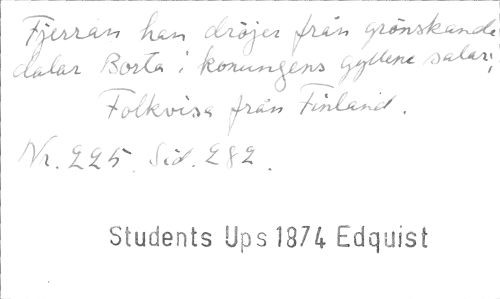 Fjerran han dröjer från grönskande
dalar Borta i konungens gyllene salar;
Folkvisa från Finland.
Nr. 225. Sid. 282.
Students Ups 1874 Edquist